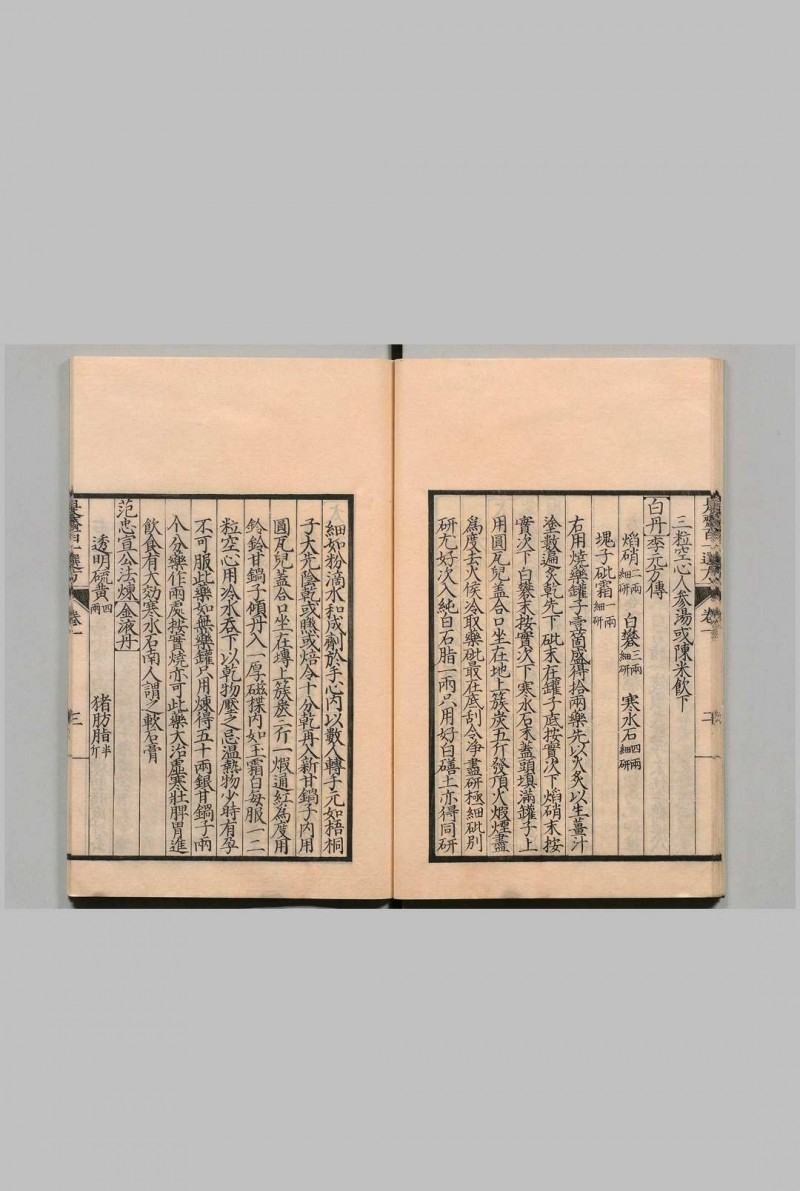 是齋百一選方 卷一 二
三粒空心人參湯或陳米飲下
白丹李元方傳
焰硝二兩細研 白礬三兩細研 寒水石四兩細研
塊子砒霜一兩細研
右用燒藥罐子壹箇盛得拾兩藥先以火炙以生薑汁
塗數遍炙乾先下砒末在罐子底按實次下焰硝末按
實次下白礬末按實次下寒水石末蓋頭填滿罐子上
用圓瓦兒蓋合口坐在地上簇炭五斤發頂火煅煙盡
爲度去火候冷取藥砒最在底刮令淨盡研極細砒別
研尤好次入純白石脂一兩只用好白磰土亦得同研
細如粉滴水和成劑於手心內以數人轉手元如梧桐
子大先陰乾或曬或焙令十分乾再入新甘鍋子內用
圓瓦兒蓋合口坐在塼上簇炭二斤一煅通紅為度用
鈐鈐甘鍋子傾丹入一厚磁楪內如玉霜白每服一二
粒空心用冷水吞下以乾物壓之忌溫熱物少時有孕
不可服此藥如無藥罐只用煉得五十兩銀甘鍋子兩
个分藥作兩處按實燒亦可此藥大治虛寒壯脾胃進
飲食有大効寒水石南人謂之軟石膏
范忠宣公法煉金液丹
透明硫黃四兩 猪肪脂半斤
是齋百一選方 卷一 三